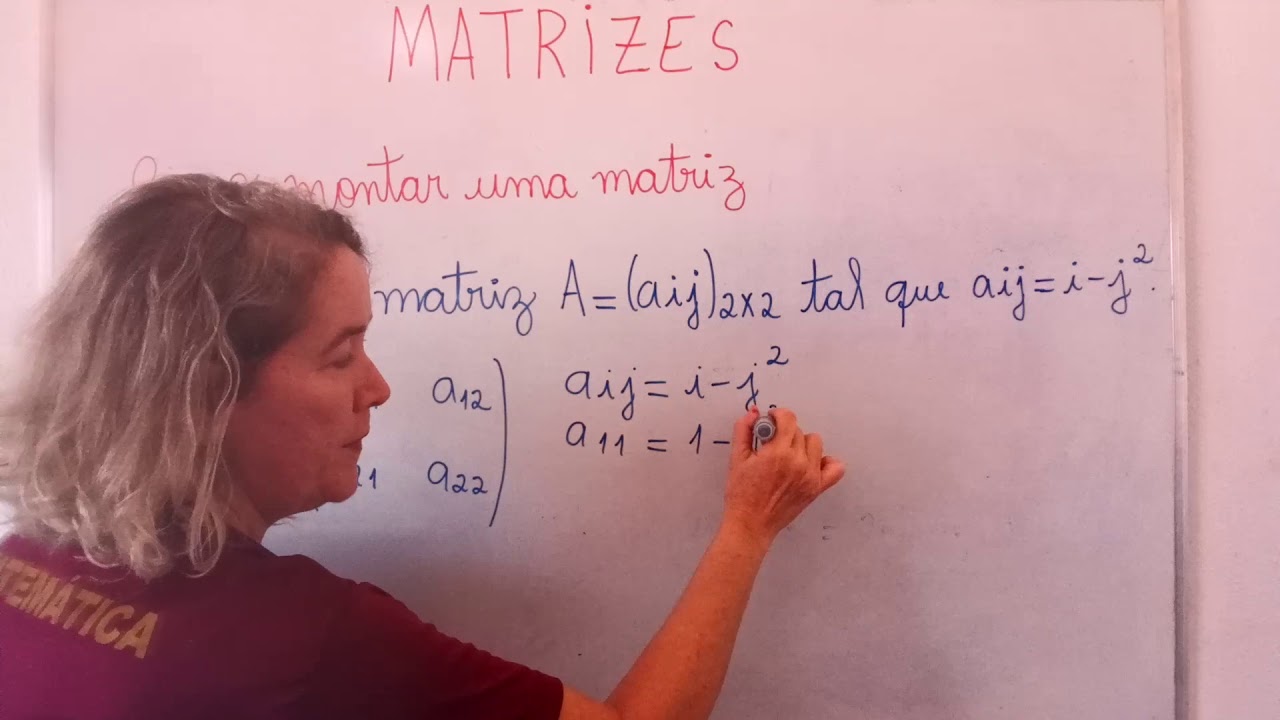 MATRIZES
montar uma matriz
matriz A = (aij)2x2 tal que aij = i - j².
a12
aij = i - j²
a11 = 1 -
a22
TEMÁTICA